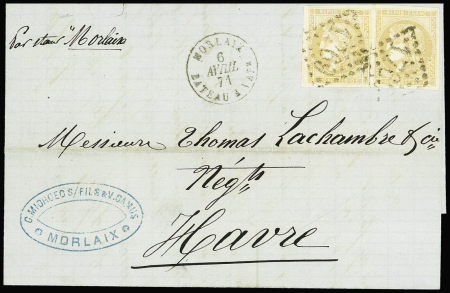 Par steamr "Morlaix"
MORLAIX
6
AVRIL
71
BATEAU A VAP.
Messieurs Thomas Lachambre & Cie
Négts
Havre
G. MIORCEC S/ FILS & V. DAMUS
MORLAIX